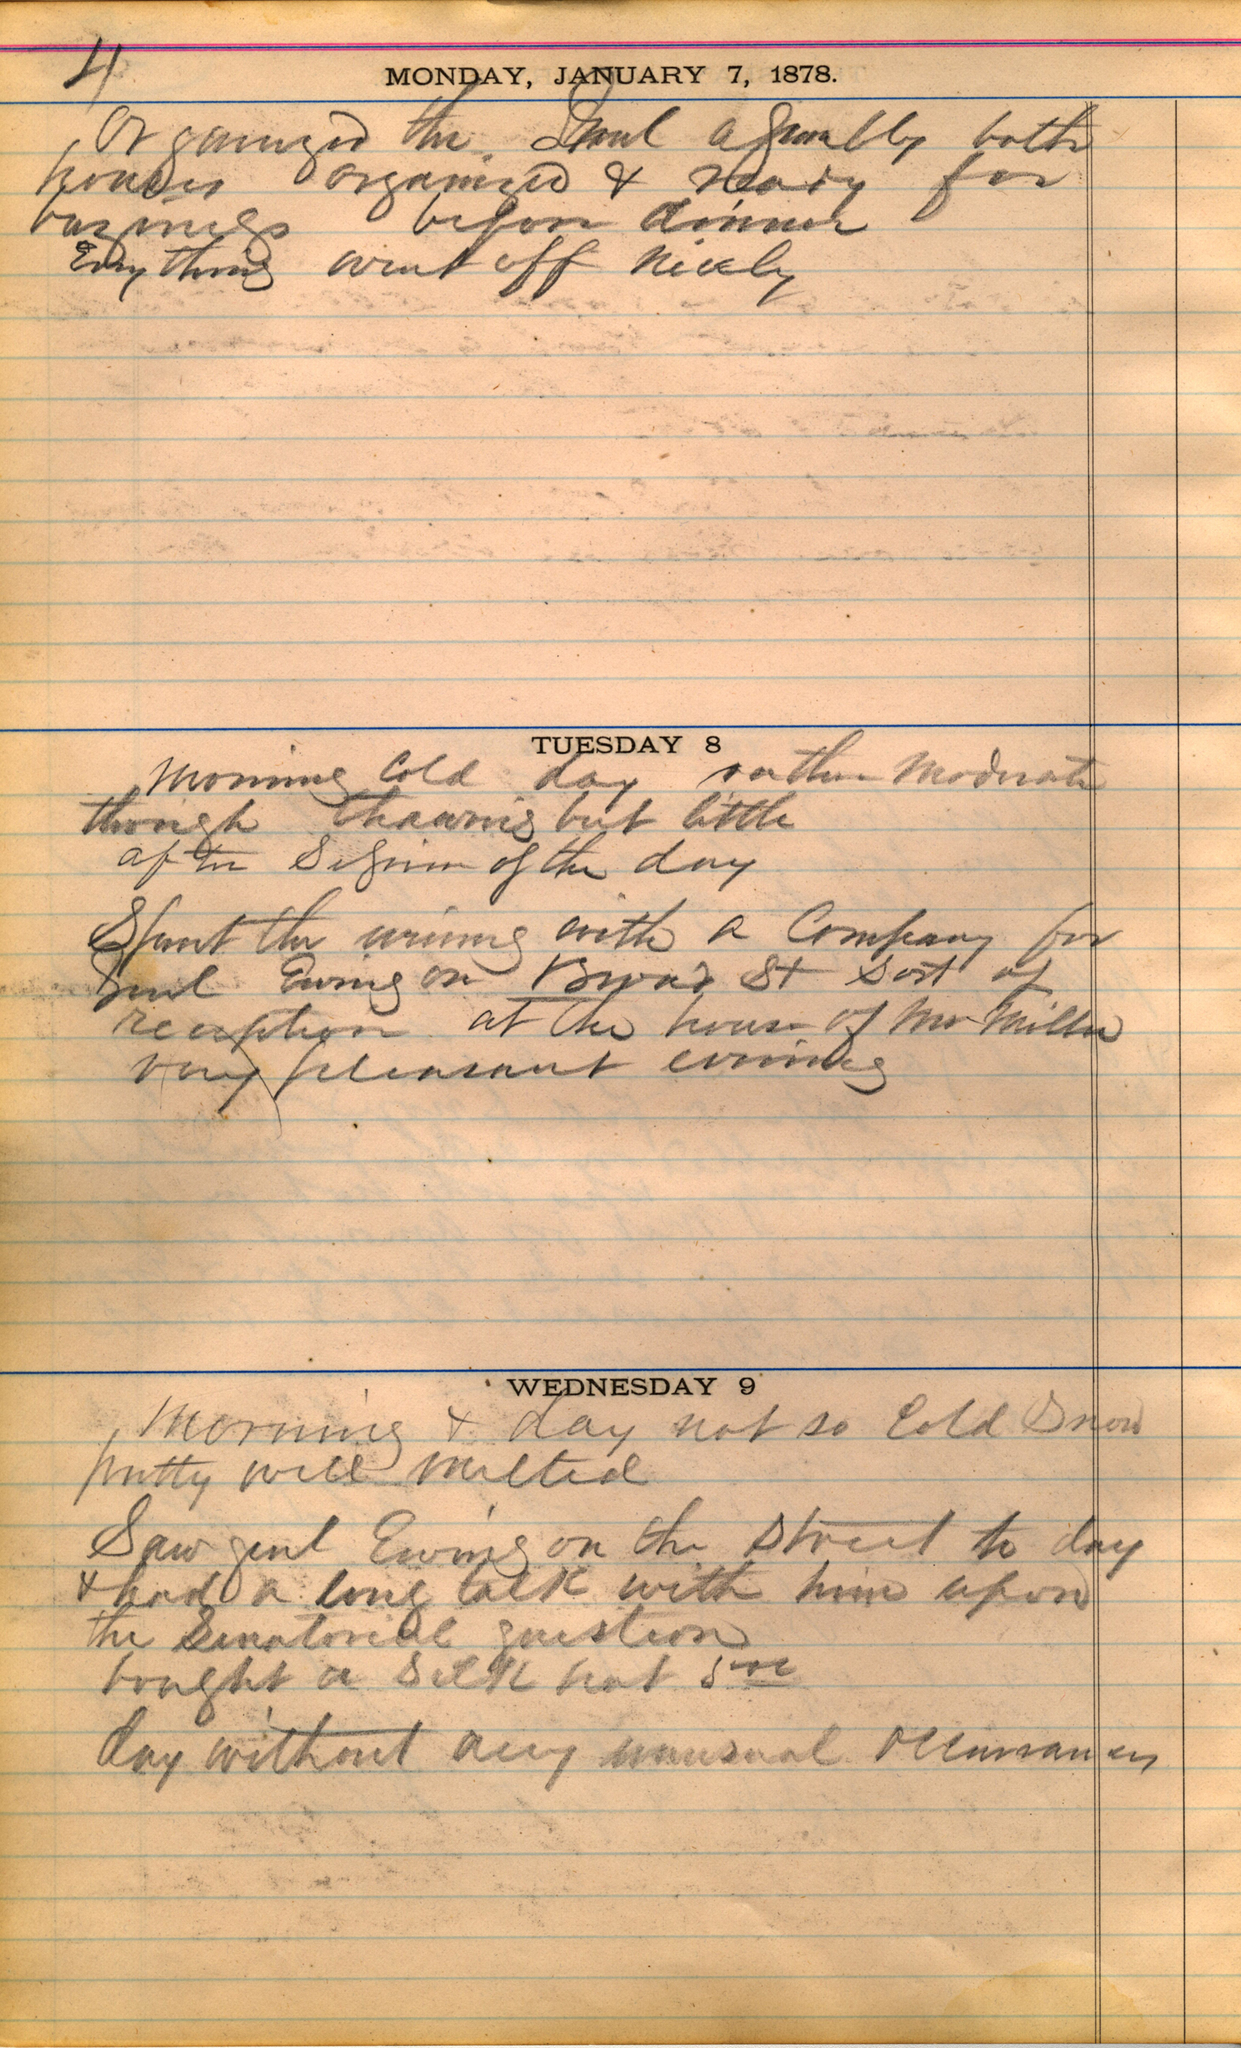 4
MONDAY, JANUARY 7, 1878.
Organized the Genl assembly both
houses organized & ready for
business before dinner
Everything went off nicely
TUESDAY 8
Morning Cold day rather Moderate
though thawing but little
after Session of the day
Spent the evening with a Company for
Genl Ewing on Broad St Sort of
reception at the house of Mr Miller
very pleasant evening
WEDNESDAY 9
Morning & day not so Cold Snow
pretty well melted
Saw genl Ewing on the Street to day
& had a long talk with him upon
the Senatorial question
bought a Silk hat 5
day without any unusual occurrances